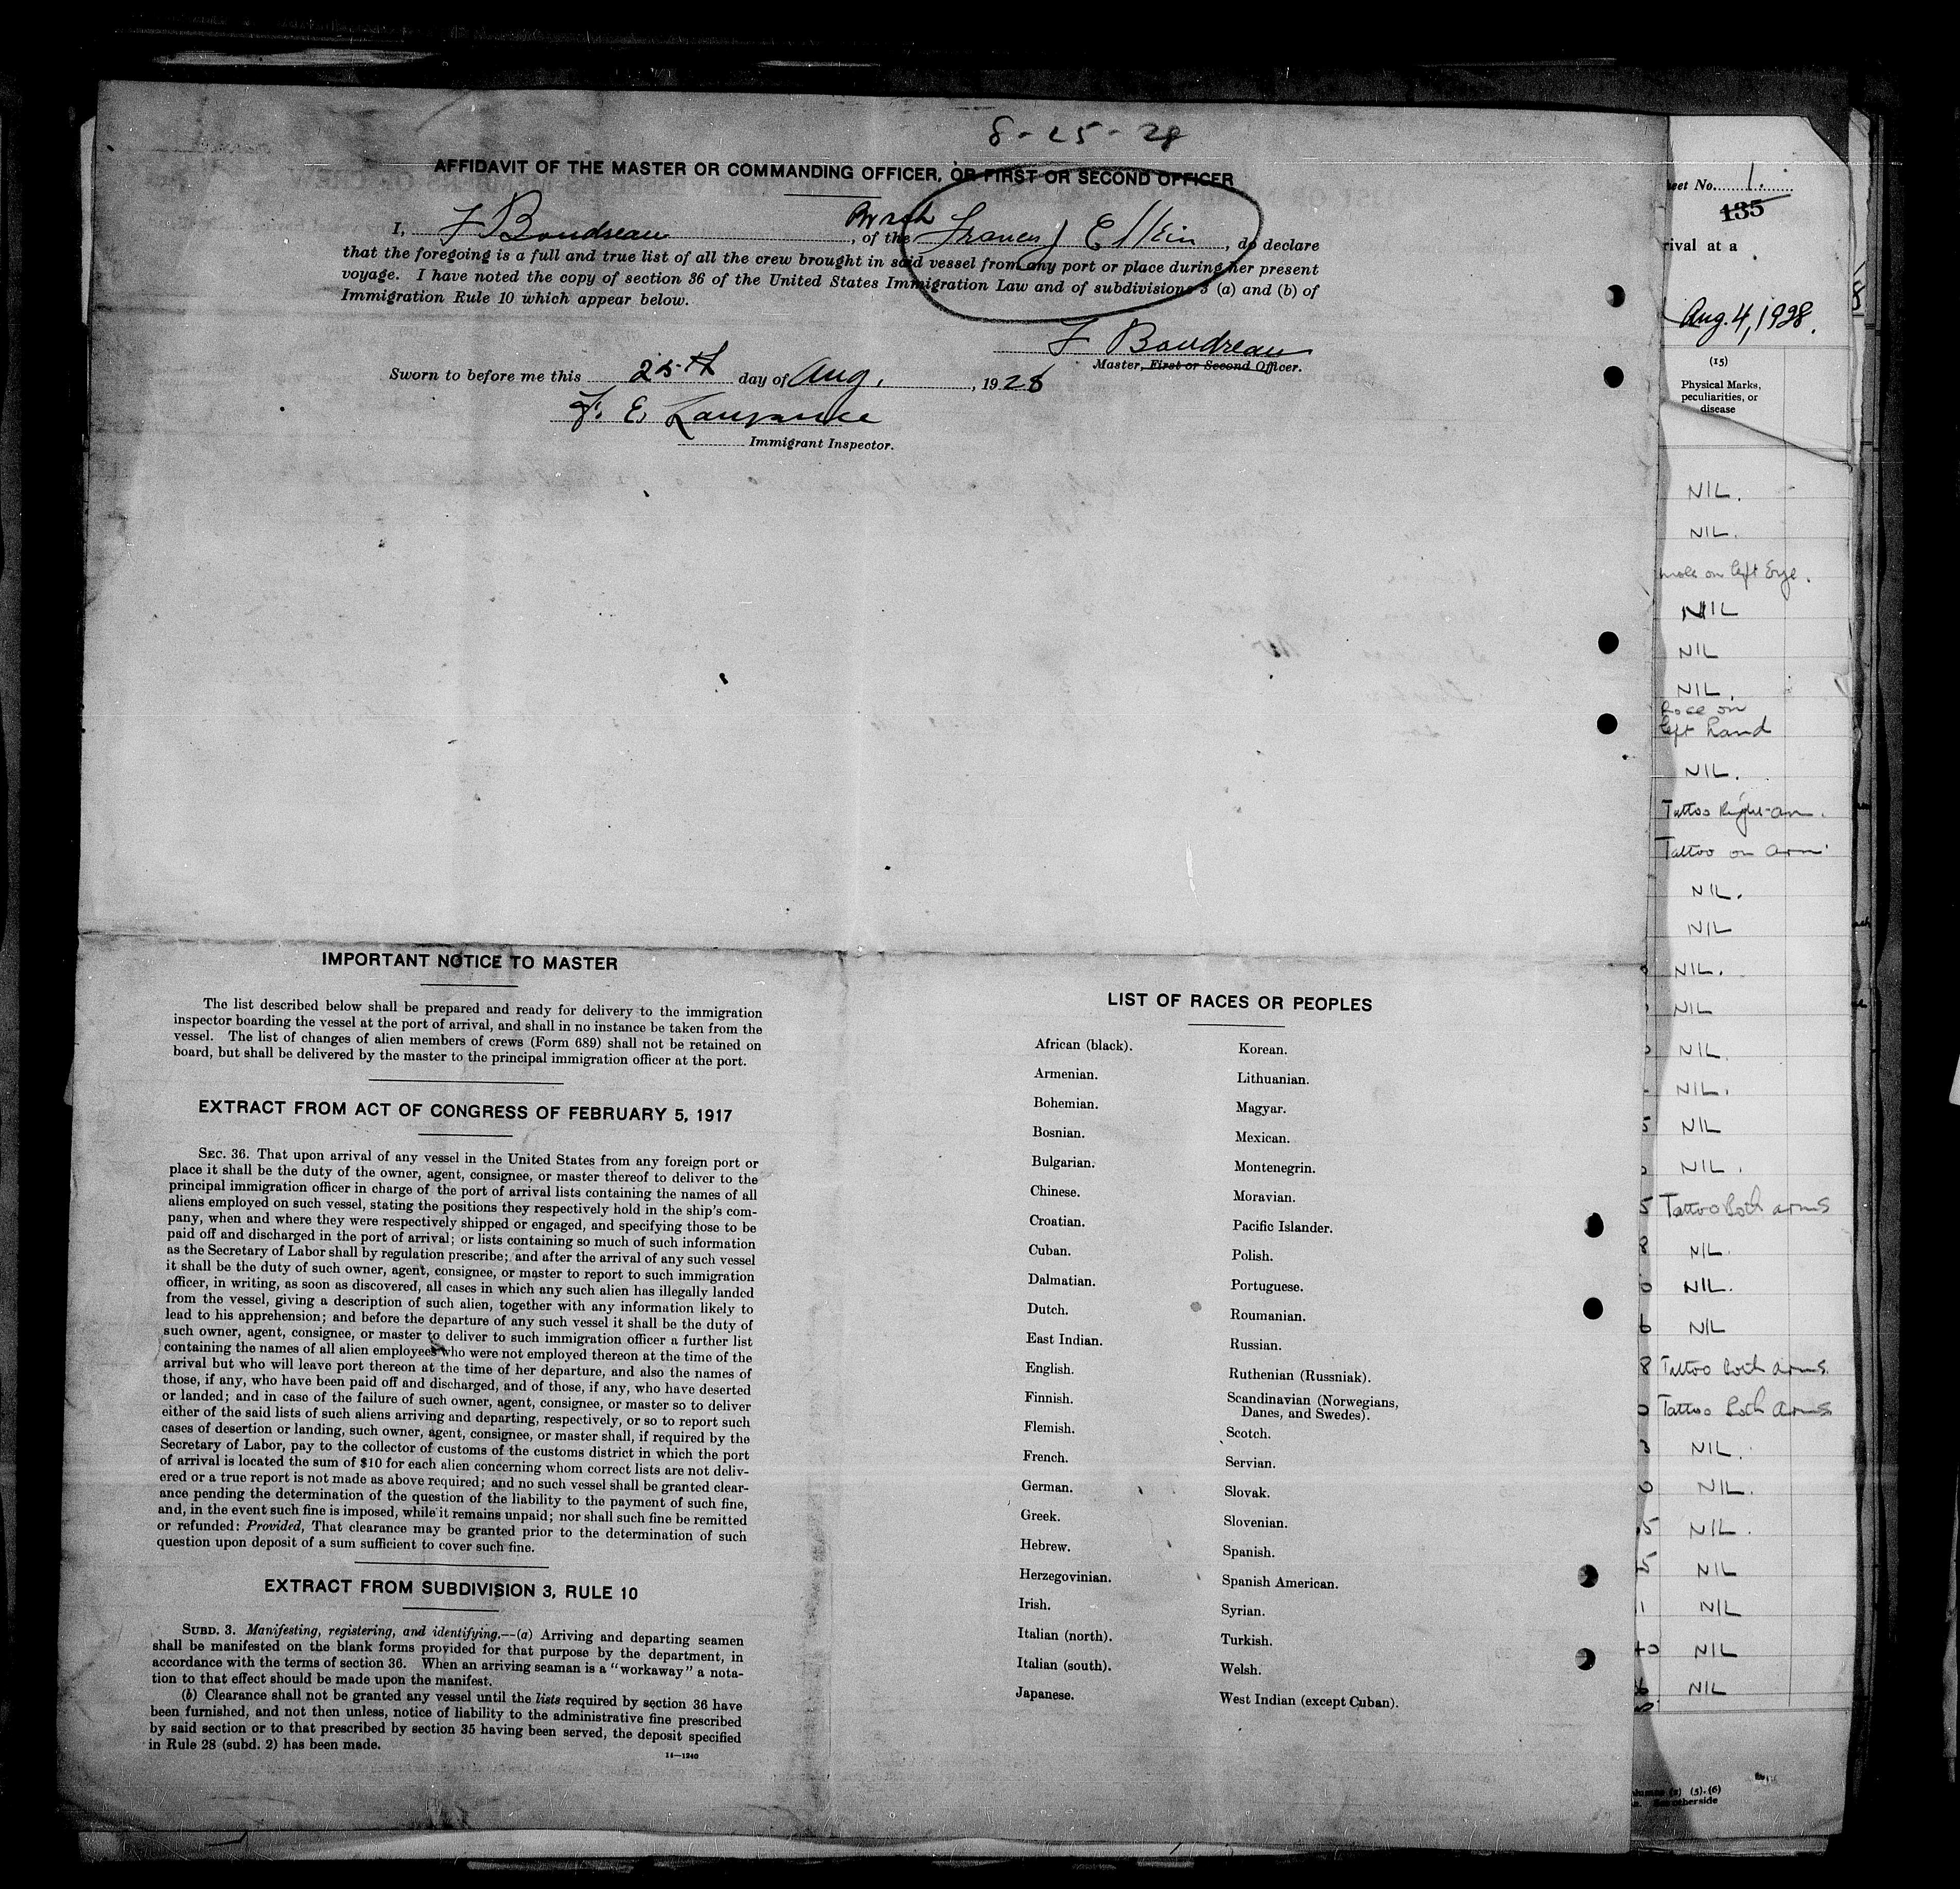 8-25-28
AFFIDAVIT OF THE MASTER OR COMMANDING OFFICER, OR FIRST OR SECOND OFFICER
I, F Boudreau, of the Francis J Elkin, do declare
that the foregoing is a full and true list of all the crew brought in said vessel from any port or place during her present
voyage. I have noted the copy of section 36 of the United States Immigration Law and of subdivisions 3 (a) and (b) of
Immigration Rule 10 which appear below.
F Boudreau
Master, First or Second Officer.
Sworn to before me this 25th day of Aug., 1928
F. E.
Immigrant Inspector.
IMPORTANT NOTICE TO MASTER
The list described below shall be prepared and ready for delivery to the immigration
inspector boarding the vessel at the port of arrival, and shall in no instance be taken from the
vessel. The list of changes of alien members of crews (Form 689) shall not be retained on
board, but shall be delivered by the master to the principal immigration officer at the port.
EXTRACT FROM ACT OF CONGRESS OF FEBRUARY 5, 1917
SEC. 36. That upon arrival of any vessel in the United States from any foreign port or
place it shall be the duty of the owner, agent, consignee, or master thereof to deliver to the
principal immigration officer in charge of the port of arrival lists containing the names of all
aliens employed on such vessel, stating the positions they respectively hold in the ship's com-
pany, when and where they were respectively shipped or engaged, and specifying those to be
paid off and discharged in the port of arrival; or lists containing so much of such information
as the Secretary of Labor shall by regulation prescribe; and after the arrival of any such vessel
it shall be the duty of such owner, agent, consignee, or master to report to such immigration
officer, in writing, as soon as discovered, all cases in which any such alien has illegally landed
from the vessel, giving a description of such alien, together with any information likely to
lead to his apprehension; and before the departure of any such vessel it shall be the duty of
such owner, agent, consignee, or master to deliver to such immigration officer a further list
containing the names of all alien employees who were not employed thereon at the time of the
arrival but who will leave port thereon at the time of her departure, and also the names of
those, if any, who have been paid off and discharged, and of those, if any, who have deserted
or landed; and in case of the failure of such owner, agent, consignee, or master so to deliver
either of the said lists of such aliens arriving and departing, respectively, or so to report such
cases of desertion or landing, such owner, agent, consignee, or master shall, if required by the
Secretary of Labor, pay to the collector of customs of the customs district in which the port
of arrival is located the sum of $10 for each alien concerning whom correct lists are not deliv-
ered or a true report is not made as above required; and no such vessel shall be granted clear-
ance pending the determination of the question of the liability to the payment of such fine,
and, in the event such fine is imposed, while it remains unpaid; nor shall such fine be remitted
or refunded: Provided, That clearance may be granted prior to the determination of such
question upon deposit of a sum sufficient to cover such fine.
EXTRACT FROM SUBDIVISION 3, RULE 10
SUBD. 3. Manifesting, registering, and identifying.—(a) Arriving and departing seamen
shall be manifested on the blank forms provided for that purpose by the department, in
accordance with the terms of section 36. When an arriving seaman is a "workaway" a nota-
tion to that effect should be made upon the manifest.
(b) Clearance shall not be granted any vessel until the lists required by section 36 have
been furnished, and not then unless, notice of liability to the administrative fine prescribed
by said section or to that prescribed by section 35 having been served, the deposit specified
in Rule 28 (subd. 2) has been made.
14—1240
LIST OF RACES OR PEOPLES
African (black).
Armenian.
Bohemian.
Bosnian.
Bulgarian.
Chinese.
Croatian.
Cuban.
Dalmatian.
Dutch.
East Indian.
English.
Finnish.
Flemish.
French.
German.
Greek.
Hebrew.
Herzegovinian.
Irish.
Italian (north).
Italian (south).
Japanese.
Korean.
Lithuanian.
Magyar.
Mexican.
Montenegrin.
Moravian.
Pacific Islander.
Polish.
Portuguese.
Roumanian.
Russian.
Ruthenian (Russniak).
Scandinavian (Norwegians,
Danes, and Swedes).
Scotch.
Servian.
Slovak.
Slovenian.
Spanish.
Spanish American.
Syrian.
Turkish.
Welsh.
West Indian (except Cuban).
eet No. 1.
135
rival at a
Aug. 4, 1928.
(15)
Physical Marks,
peculiarities, or
disease
NIL.
NIL.
mole on left Eye.
NIL
NIL
NIL.
on
left hand
NIL.
Tattoo Right arm.
Tattoo on arm
NIL.
NIL
NIL.
NIL
NIL.
NIL.
5 NIL
NIL.
5 Tattoo Both arms
8 NIL.
0 NIL.
6 NIL
8 Tattoo both arms.
0 Tattoo Both Arms
3 NIL.
0 NIL.
5 NIL.
5 NIL
1 NIL
40 NIL
NIL
(5), (6)
otherside